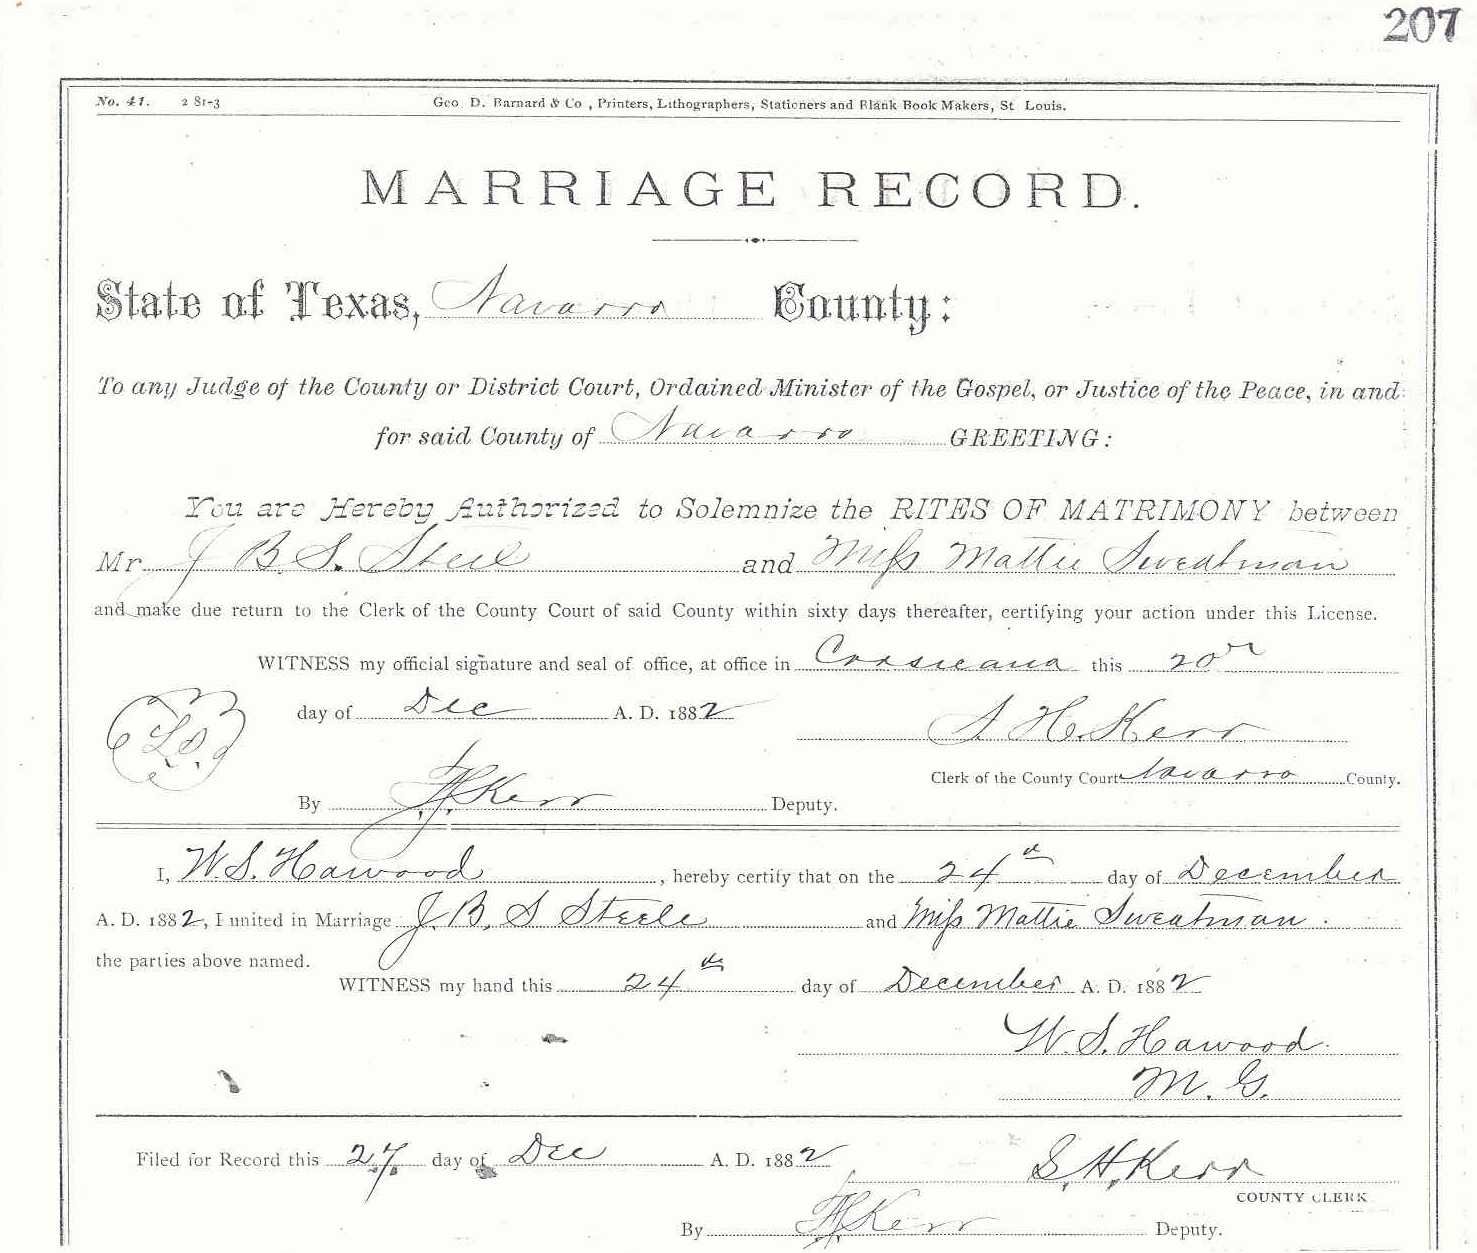 207
No. 41. 2 81-3 Geo D. Barnard & Co , Printers, Lithographers, Stationers and Blank Book Makers, St Louis.
MARRIAGE RECORD.
State of Texas, Navarro County:
To any Judge of the County or District Court, Ordained Minister of the Gospel, or Justice of the Peace, in and
for said County of Navarro GREETING:
You are Hereby Authorized to Solemnize the RITES OF MATRIMONY between
Mr. J B. S. Steele and Miss Mattie Sweatman
and make due return to the Clerk of the County Court of said County within sixty days thereafter, certifying your action under this License.
WITNESS my official signature and seal of office, at office in Corsicana this 20
day of Dec A. D. 1882
S. H. Kerr
L.S.
Clerk of the County Court Navarro County.
By Kerr Deputy.
I, W. S. Hawood, hereby certify that on the 24th day of December
A. D. 1882, I united in Marriage J. B. S Steele and Miss Mattie Sweatman.
the parties above named.
WITNESS my hand this 24th day of December A. D. 1882
W. S. Hawood.
M. G.
Filed for Record this 27. day of Dec A. D. 1882
S. H. Kerr
COUNTY CLERK
By Kerr Deputy.